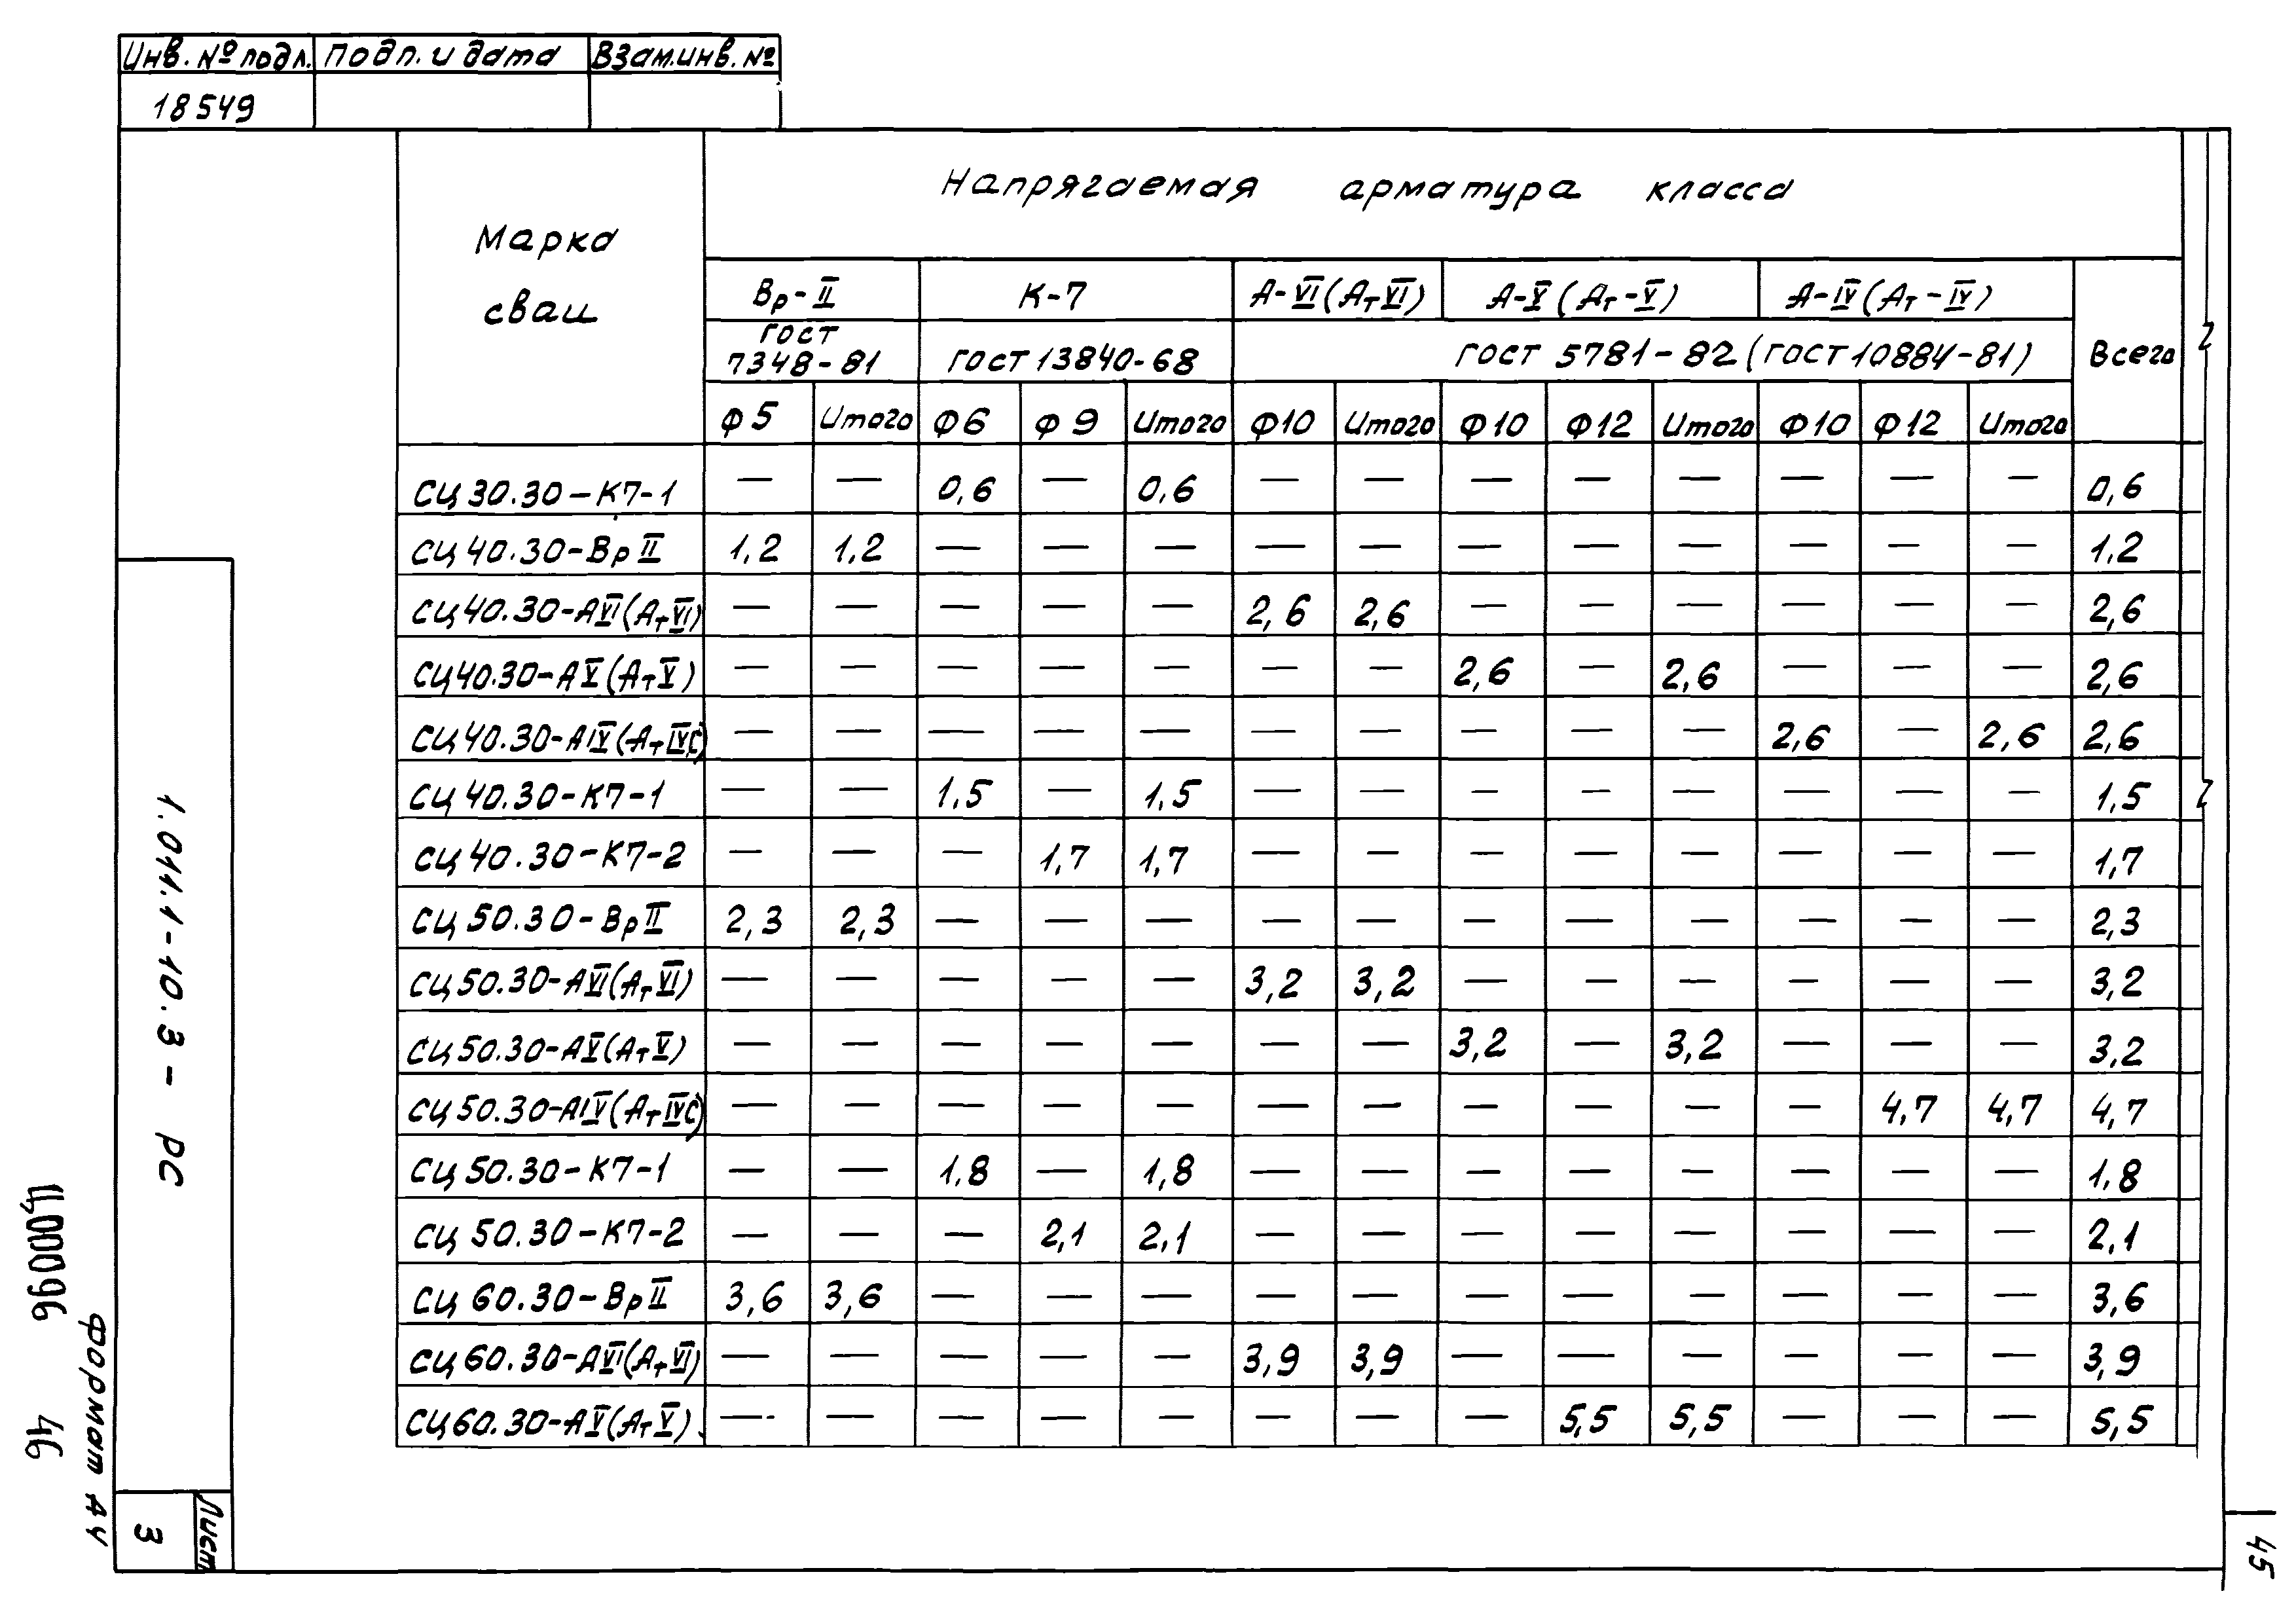 Инв. № подл. Подп. и дата Взам.инв. №
18549
Напрягаемая арматура класса
Марка
сваи
Вр-II К-7 А-VI(АтVI) А-V(Ат-V) А-IV(Ат-IV)
ГОСТ
7348-81 ГОСТ 13840-68 ГОСТ 5781-82 (ГОСТ 10884-81) Всего
Ф5 Итого Ф6 Ф9 Итого Ф10 Итого Ф10 Ф12 Итого Ф10 Ф12 Итого
СЦ30.30-К7-1 — — 0,6 — 0,6 — — — — — — — — 0,6
СЦ40.30-ВрII 1,2 1,2 — — — — — — — — — — — 1,2
СЦ40.30-АVI(АтVI) — — — — — 2,6 2,6 — — — — — — 2,6
СЦ40.30-АV(АтV) — — — — — — — 2,6 — 2,6 — — — 2,6
СЦ40.30-АIV(АтIVС) — — — — — — — — — — 2,6 — 2,6 2,6
СЦ40.30-К7-1 — — 1,5 — 1,5 — — — — — — — — 1,5
СЦ40.30-К7-2 — — — 1,7 1,7 — — — — — — — — 1,7
СЦ50.30-ВрII 2,3 2,3 — — — — — — — — — — — 2,3
СЦ50.30-АVI(АтVI) — — — — — 3,2 3,2 — — — — — — 3,2
СЦ50.30-АV(АтV) — — — — — — — 3,2 — 3,2 — — — 3,2
СЦ50.30-АIV(АтIVС) — — — — — — — — — — — 4,7 4,7 4,7
СЦ50.30-К7-1 — — 1,8 — 1,8 — — — — — — — — 1,8
СЦ50.30-К7-2 — — — 2,1 2,1 — — — — — — — — 2,1
СЦ60.30-ВрII 3,6 3,6 — — — — — — — — — — — 3,6
СЦ60.30-АVI(АтVI) — — — — — 3,9 3,9 — — — — — — 3,9
СЦ60.30-АV(АтV) — — — — — — — — 5,5 5,5 — — — 5,5
1.011.1-10.3 - РС
Лист
3
Ц00096 46
Формат А4
45